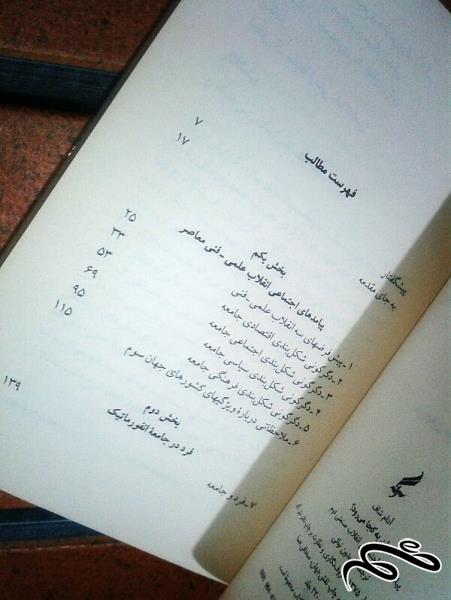 فهرست مطالب
پیشگفتار ۷
به جای مقدمه ۱۷
بخش یکم
پیامدهای اجتماعی انقلاب علمی ـ فنی معاصر
۱ـ پیش فرضهای سه انقلاب علمی ـ فنی ۲۵
۲ـ دگرگونی شکل‌بندی اقتصادی جامعه ۳۳
۳ـ دگرگونی شکل‌بندی اجتماعی جامعه ۵۳
۴ـ دگرگونی شکل‌بندی سیاسی جامعه ۶۹
۵ـ دگرگونی شکل‌بندی فرهنگی جامعه ۹۵
۶ـ ملاحظاتی دربارۀ ویژگیهای کشورهای جهان سوم ۱۱۵
بخش دوم
فرد در جامعۀ انفورماتیک
۷ـ فرد و جامعه ۱۳۹
آدام شاف